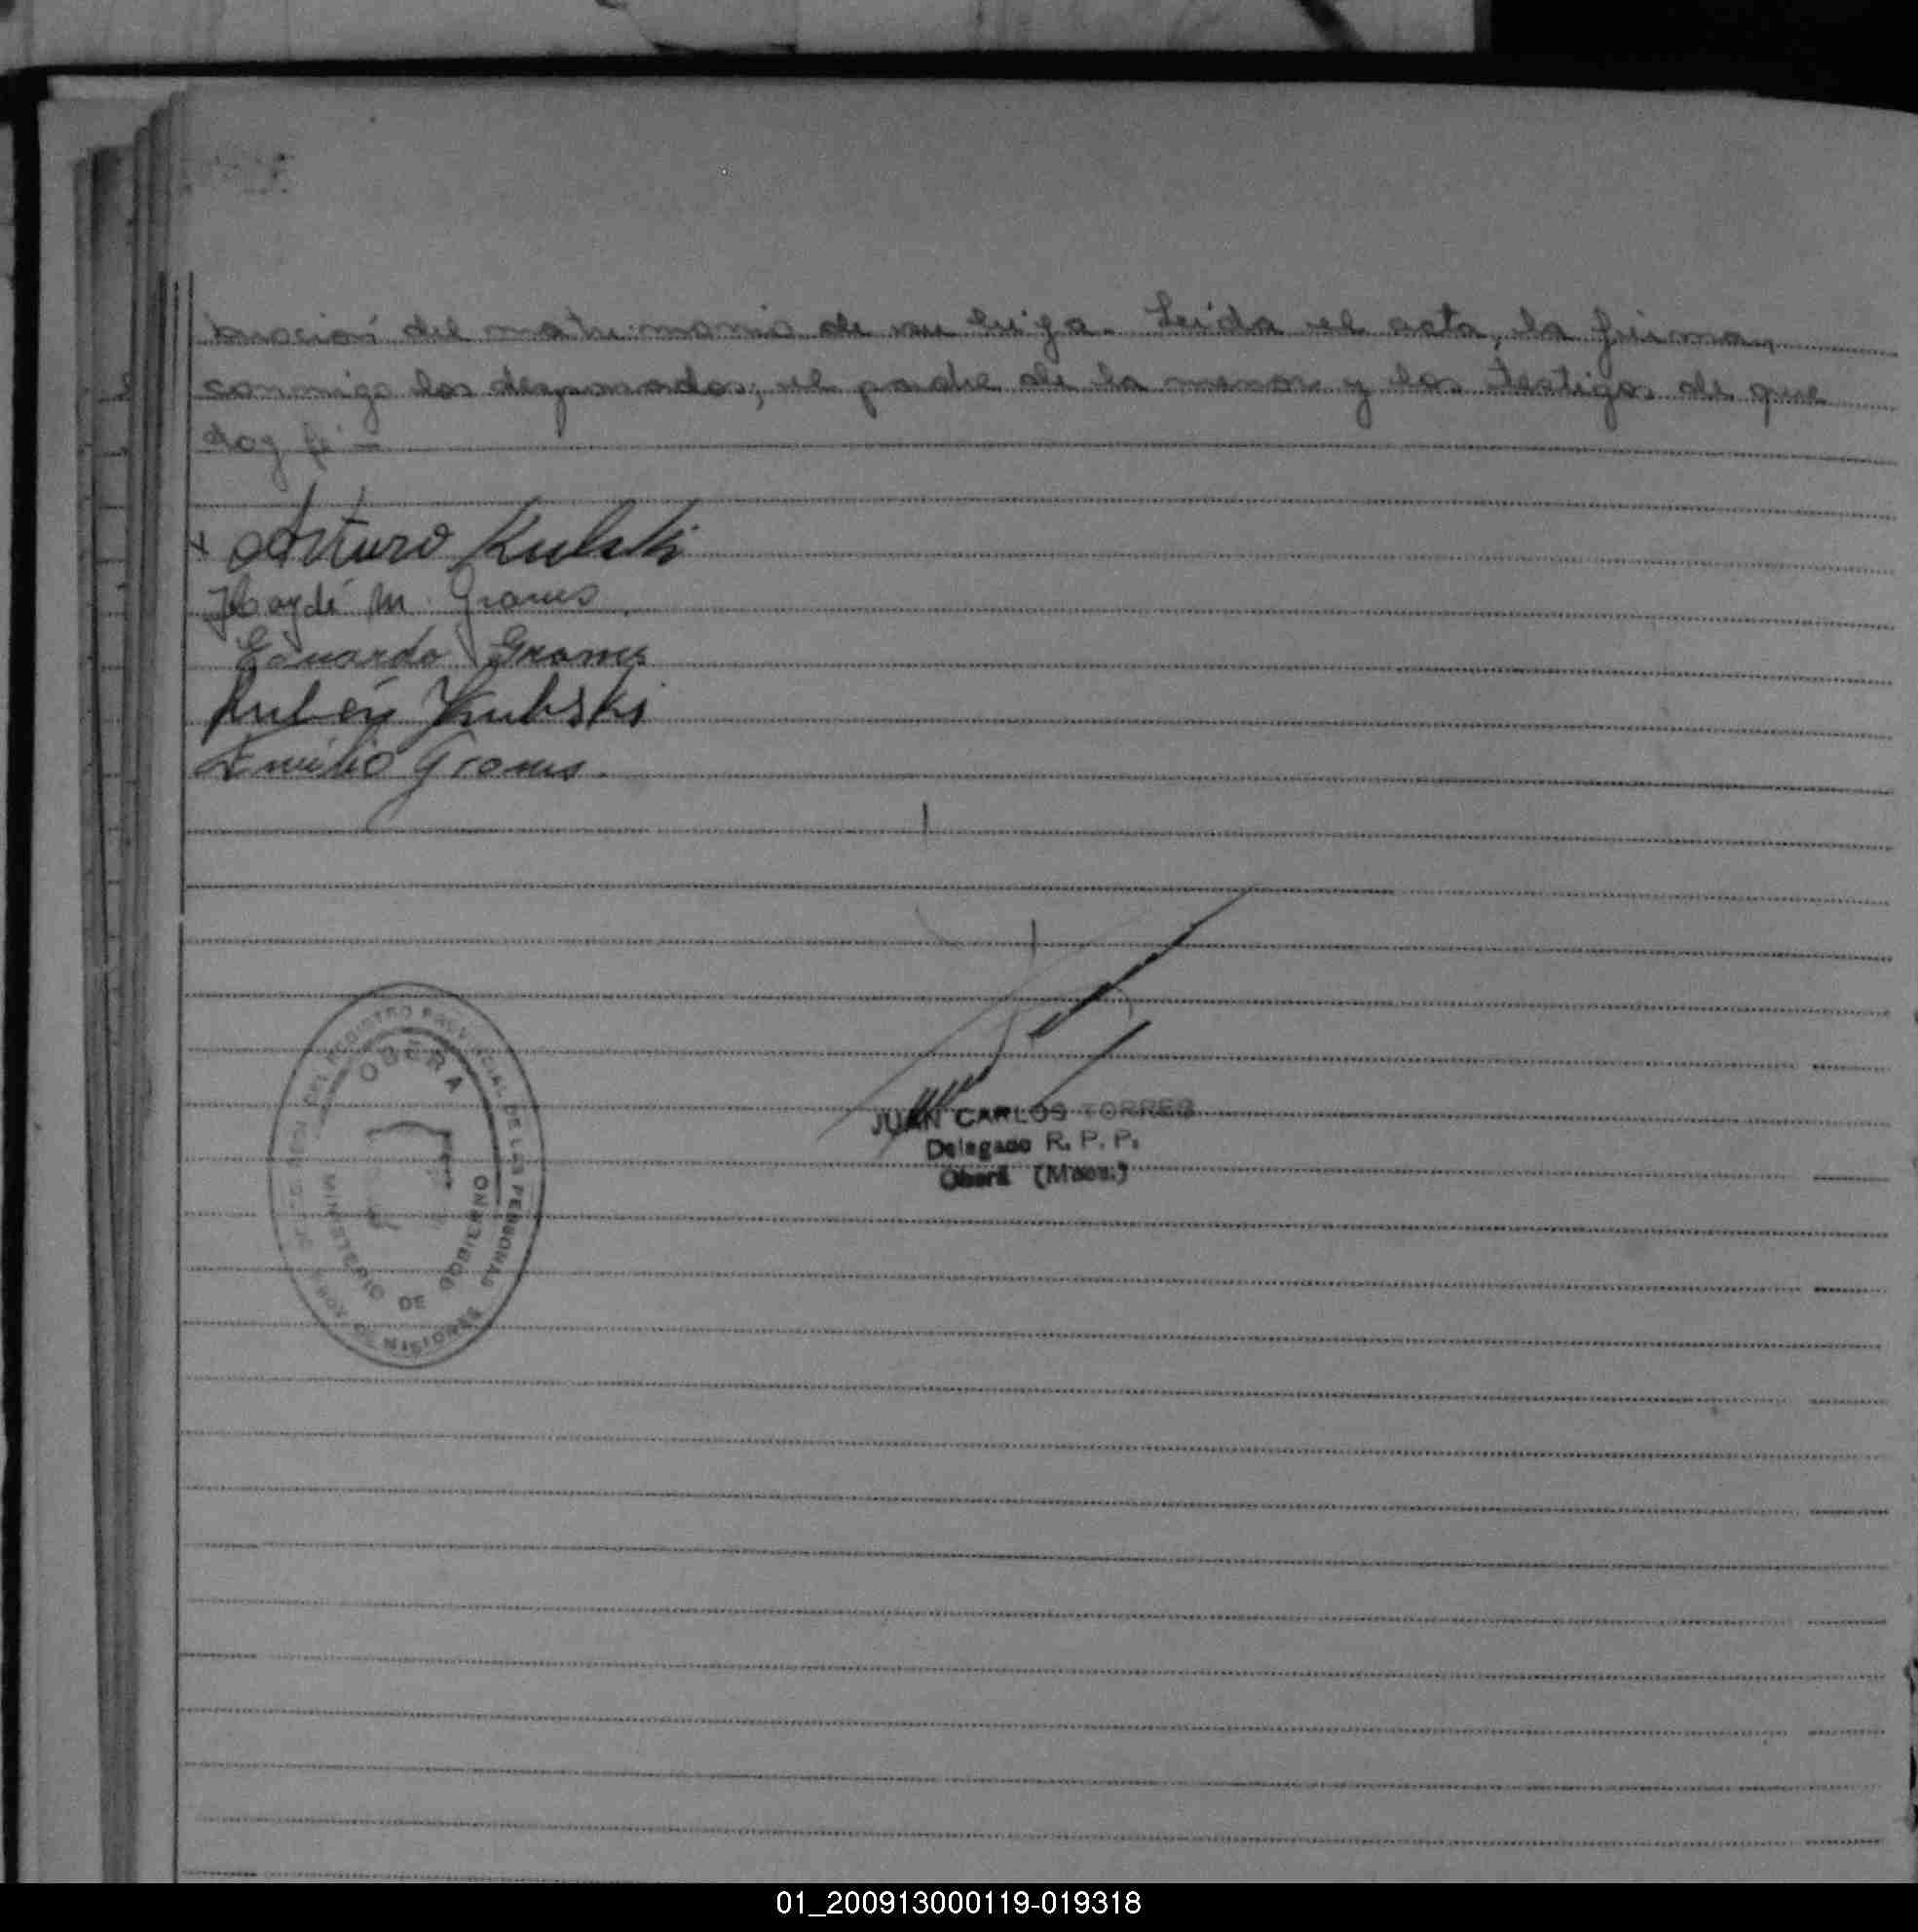 bración del matrimonio de su hija. Leida el acta, la firman
conmigo los desposados, el padre de la menor y los testigos de que
doy fé =
Arturo Kubski
Haydé M. Grams
Eduardo Grams
Rubén Kubski
Emilio Grams.
JUAN CARLOS TORRES
Delegado R. P. P.
Oberá (Mnes.)
DEL REGISTRO PROVINCIAL DE LAS PERSONAS
OBERA
MINISTERIO DE GOBIERNO
MISIONES
01_200913000119-019318